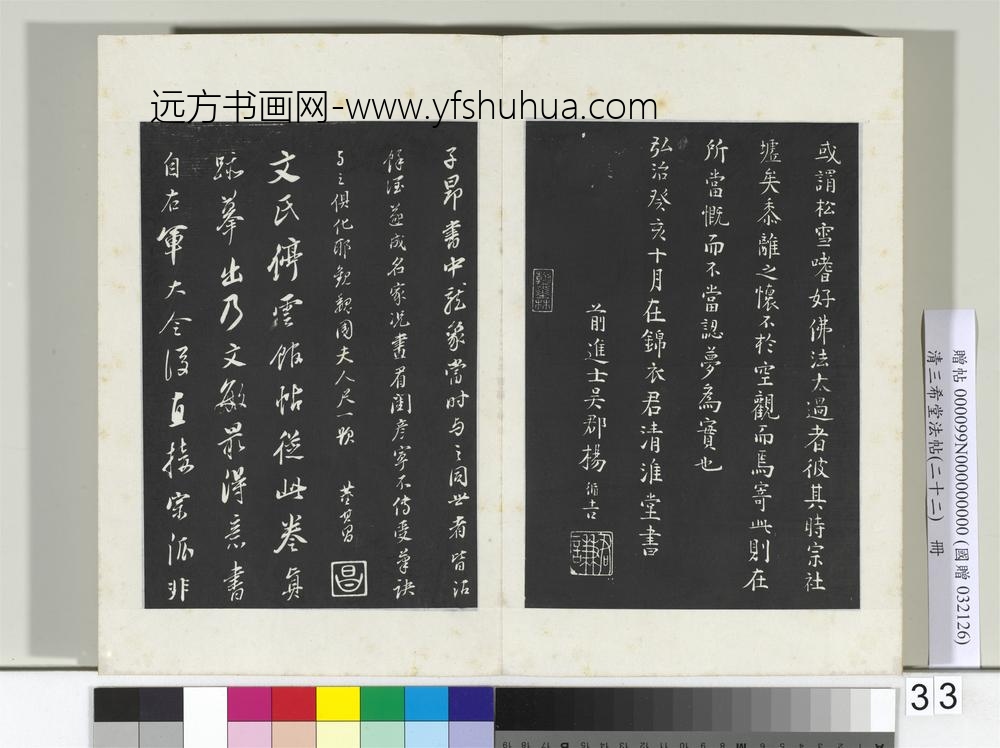 远方书画网-www.yfshuhua.com
或謂松雪嗜好佛法太過者彼其時宗社
墟矣黍離之懷不於空觀而焉寄此則在
所當慨而不當認夢為實也
弘治癸亥十月在錦衣君清淮堂書
前進士吳郡楊循吉
子昂書中龍象當时与之同世者皆沾
餘瀝並成名家況書眉閨彦寧不傳受筆訣
与之俱化耶觀魏國夫人尺一題
董其昌
昌
文氏停雲館帖從此卷真
跡摹出乃文敏最得意書
自右軍大令後直接宗派非
贈帖 000099N000000000 (國贈 032126)
清三希堂法帖(二十二) 冊
33